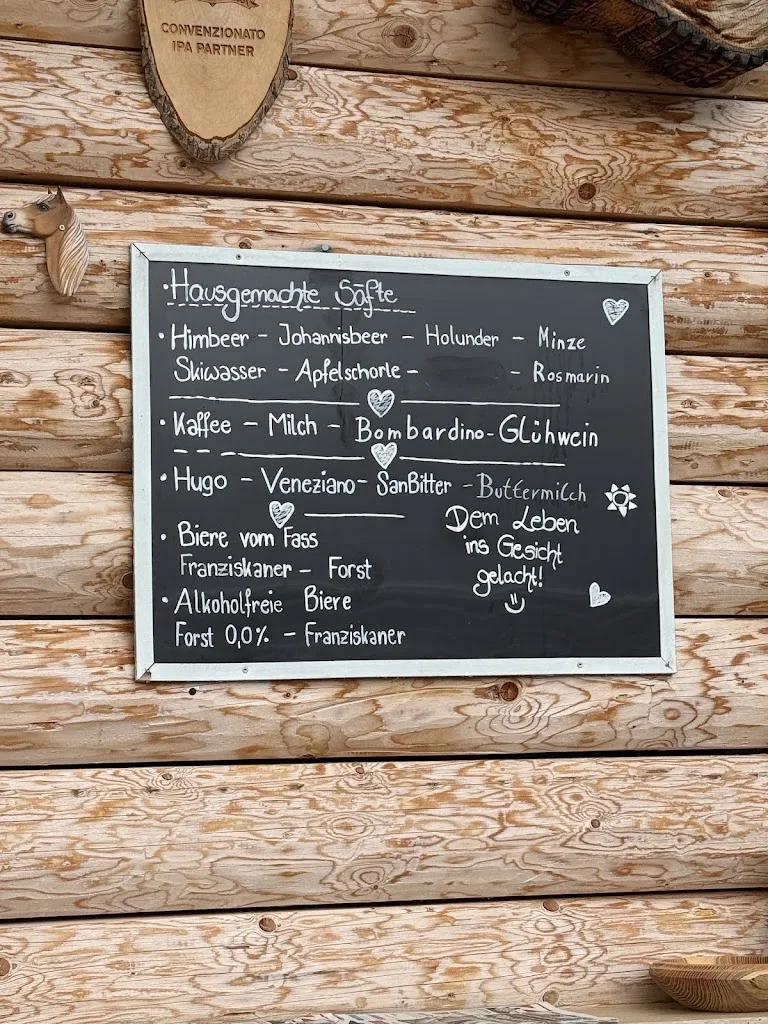 CONVENZIONATO
IPA PARTNER
• Hausgemachte Säfte
• Himbeer - Johannisbeer - Holunder - Minze
Skiwasser - Apfelschorle - - Rosmarin
• Kaffee - Milch - Bombardino - Glühwein
• Hugo - Veneziano - SanBitter - Buttermilch
• Biere vom Fass
Franziskaner - Forst
• Alkoholfreie Biere
Forst 0,0% - Franziskaner
Dem Leben
ins Gesicht
gelacht!